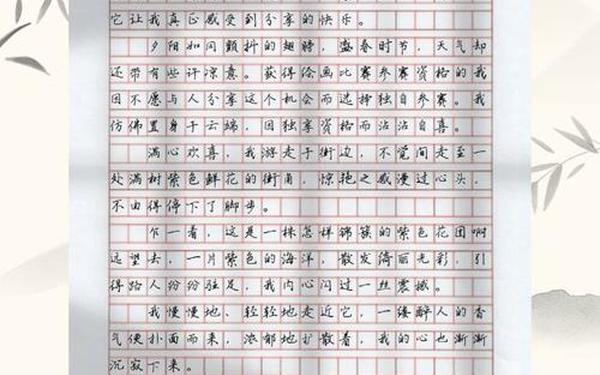 它让我真正感受到分享的快乐。
夕阳如同颤抖的翅膀，盛春时节，天气却
还带有些许凉意。获得绘画比赛参赛资格的我
因不愿与人分享这个机会而选择独自参赛。我
仿佛置身于云端，因独享资格而沾沾自喜。
满心欢喜，我游走于街边，不觉间走至一
处满树紫色鲜花的街角，惊艳之感漫过心头，
不由得停下了脚步。
乍一看，这是一株怎样锦簇的紫色花团啊
远望去，一片紫色的海洋，散发绮丽光彩，引
得路人纷纷驻足，我内心闪过一丝震撼。
我慢慢地、轻轻地走近它，一缕醉人的香
气便扑面而来，浓郁地扩散着，我的心也渐渐
沉寂下来。